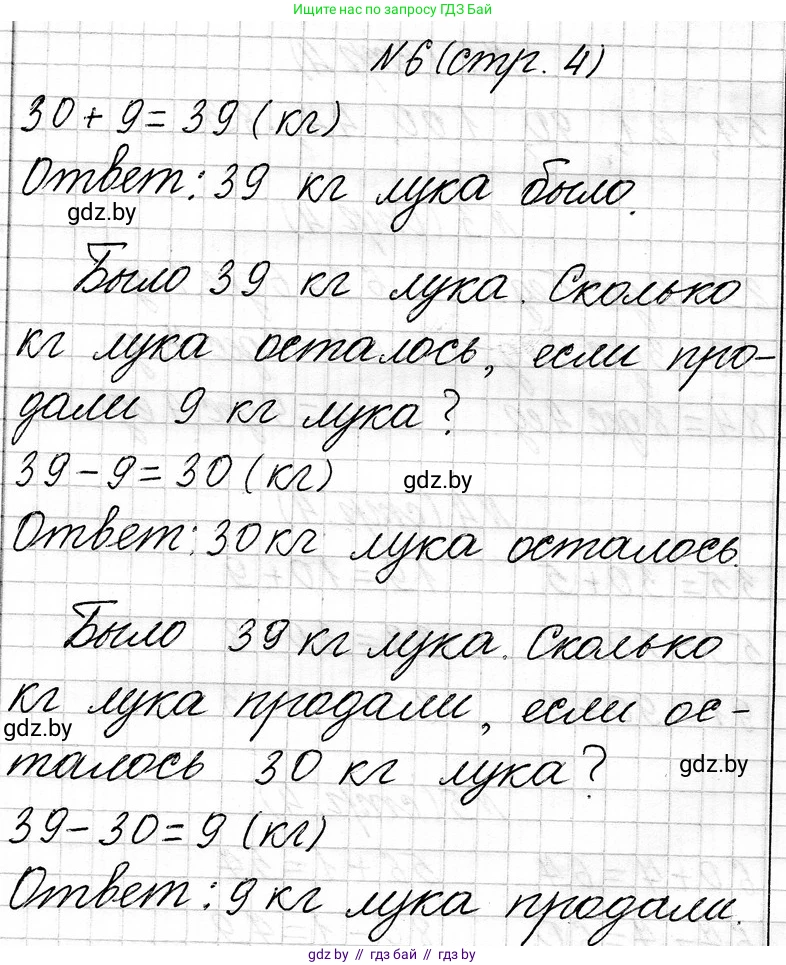 Ищите нас по запросу ГДЗ Бай
№6 (стр. 4)
30 + 9 = 39 (кг)
Ответ: 39 кг лука было.
gdz.by
Было 39 кг лука. Сколько
кг лука осталось, если про-
дали 9 кг лука?
39 - 9 = 30 (кг)
gdz.by
Ответ: 30 кг лука осталось.
Было 39 кг лука. Сколько
кг лука продали, если ос-
gdz.by
талось 30 кг лука?
gdz.by
39 - 30 = 9 (кг)
Ответ: 9 кг лука продали.
gdz.by // гдз бай // gdz.by